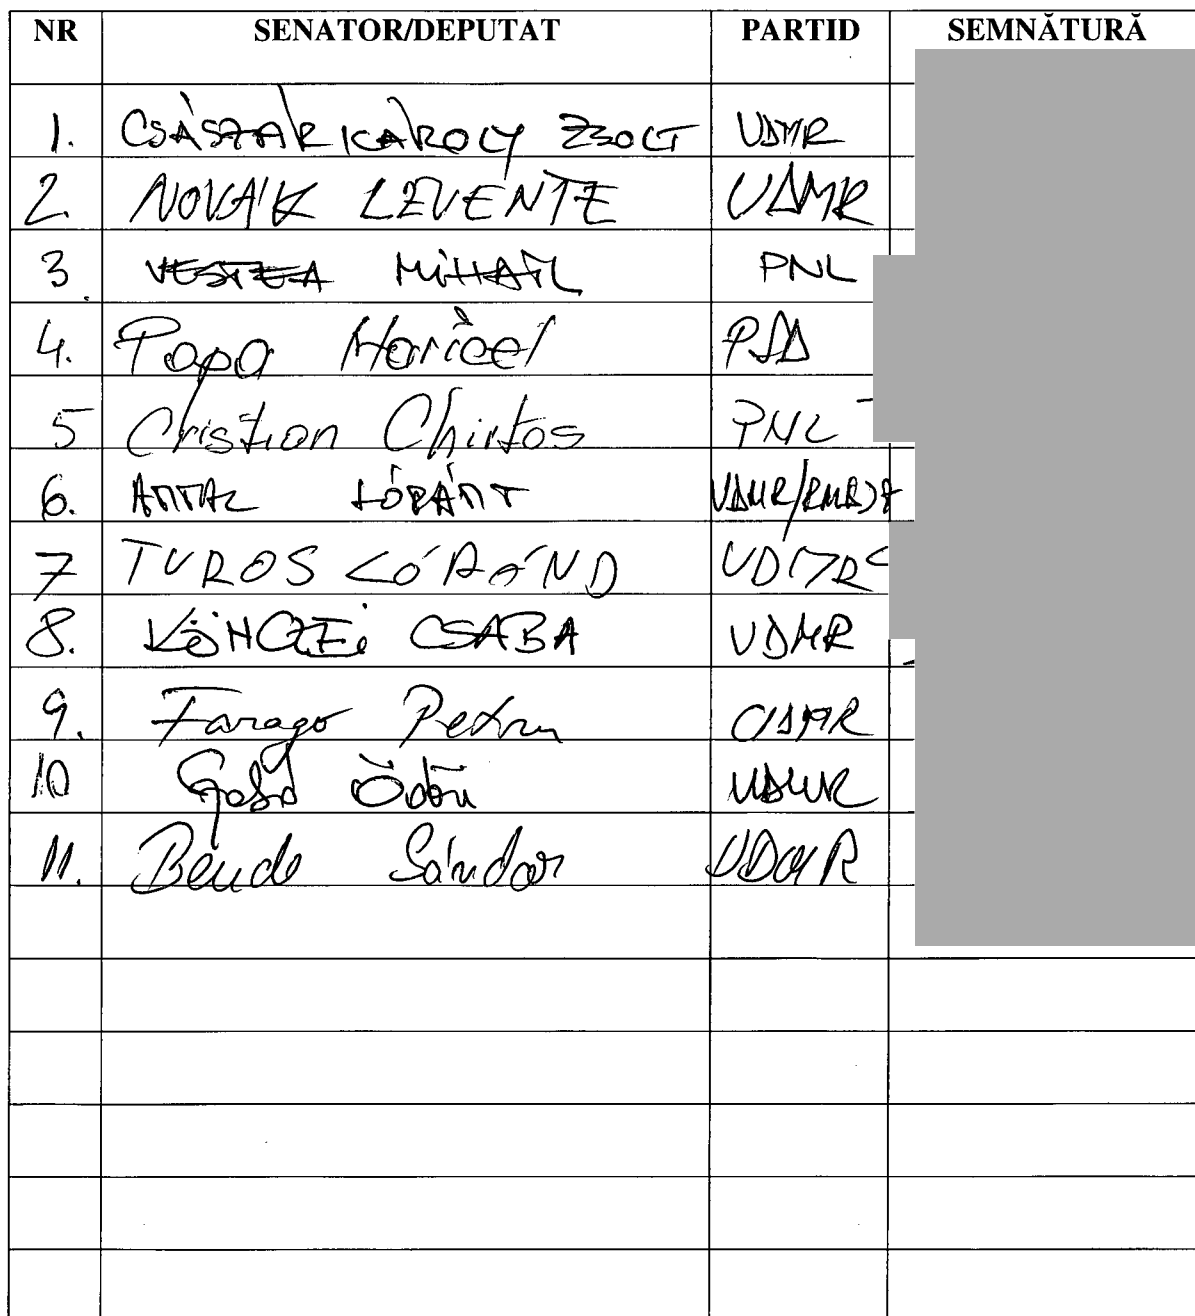 NR SENATOR/DEPUTAT PARTID SEMNĂTURĂ
1. CSÁSZÁR KÁROLY ZSOLT UDMR
2. NOVÁK LEVENTE UDMR
3. VESTEA MIHAIL PNL
4. Popa Maricel PSD
5 Cristian Chirtes PNL
6. ANTAL LÓRÁNT UDMR/RMDSZ
7 TUROS LÓRÁND UDMR
8. KÖNCZEI CSABA UDMR
9. Farago Petru UDMR
10 Ödön UDMR
11. Bende Sándor UDMR